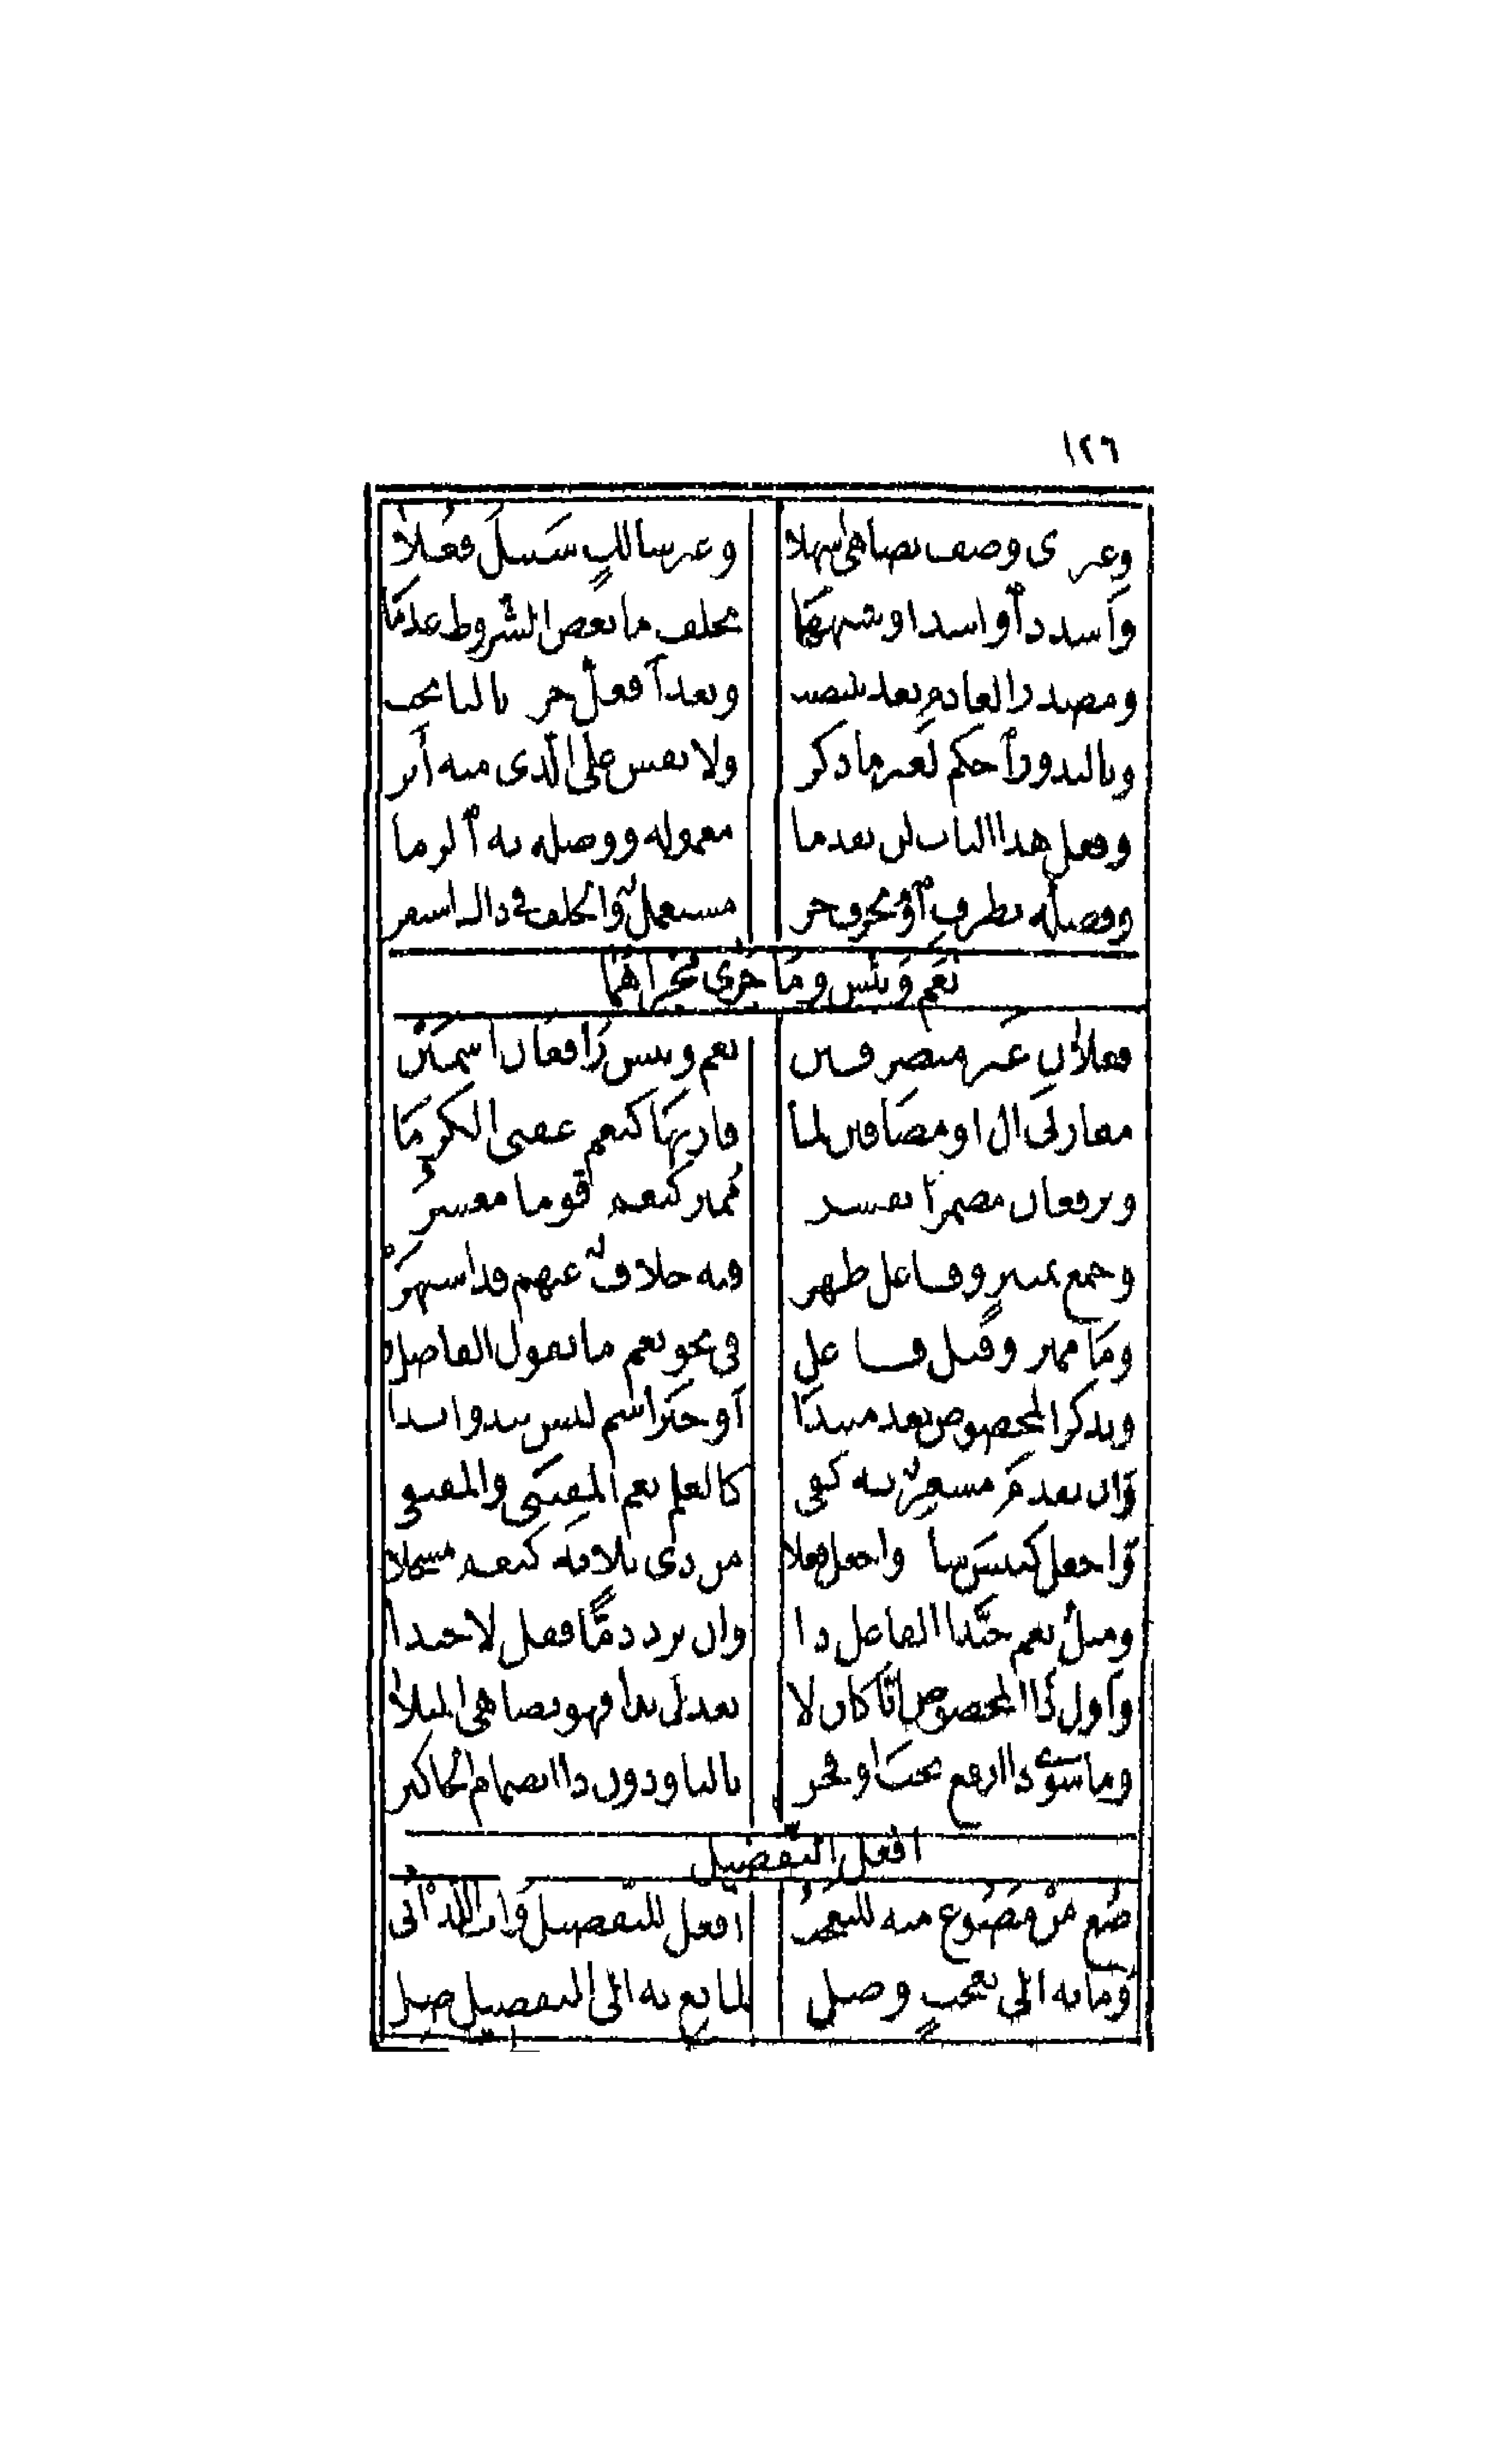 ١٢٦
وغير ذى وصف يضاهى اشهلا وغير سالك سبيل فعلا
وأشدد أو أشد أو شبههما يخلف ما بعض الشروط عدما
ومصدر العادم بعد ينتصب وبعد أفعل جره بالبا يجب
وبالندور احكم لغير ما ذكر ولا تقس على الذى منه أثر
وفعل هذا الباب لن يقدما معموله ووصله به الزما
وفصله بظرف أو بحرف جر مستعمل والخلف فى ذاك استقر
نعم وبئس وما جرى مجراهما
فعلان غير متصرفين نعم وبئس رافعان اسمين
مقارنى ال او مضافين لما قارنها كنعم عقبى الكرما
ويرفعان مضمرا يفسره مميز كنعم قوما معشره
وجمع تمييز وفاعل ظهر فيه خلاف عنهم قد اشتهر
وما مميز وقيل فاعل فى نحو نعم ما يقول الفاضل
ويذكر المخصوص بعد مبتدا أو خبر اسم ليس يبدو ابدا
وان يقدم مشعر به كفى كالعلم نعم المقتنى والمقتفى
واجعل كبئس ساء واجعل فعلا من ذى ثلاثة كنعم مسجلا
ومثل نعم حبذا الفاعل ذا وان ترد ذما فقل لا حبذا
وأول ذا المخصوص ايا كان لا تعدل بذا فهو يضاهى المثلا
وما سوى ذا ارفع بحب او فجر بالبا ودون ذا انضمام الحا كثر
افعل التفضيل
صغ من مصوغ منه للتعجب أفعل للتفضيل وأب اللذ أبى
وما به الى تعجب وصل لمانع به الى التفضيل صل